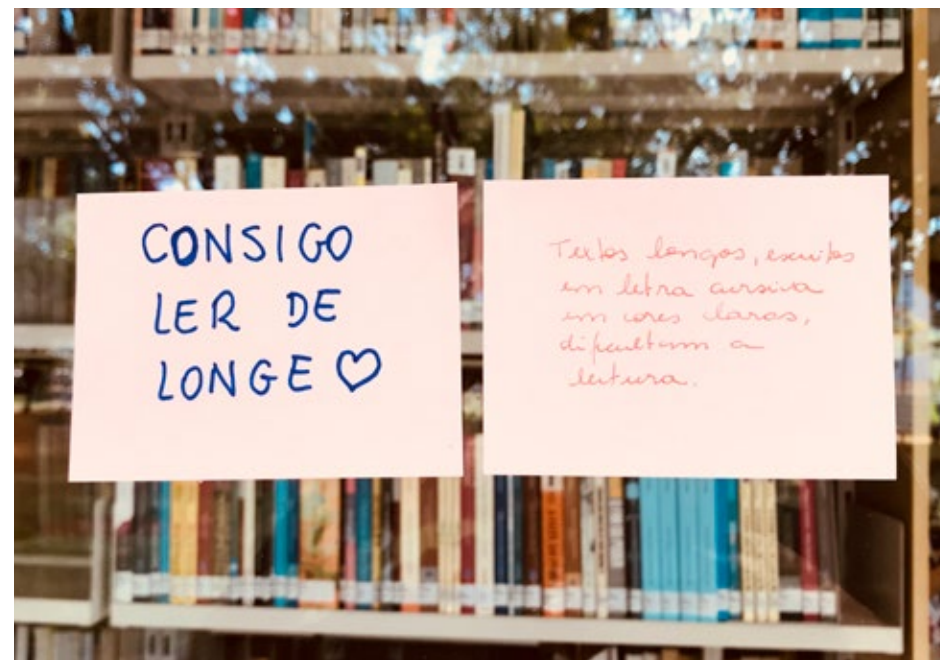 CONSIGO
LER DE
LONGE ♡
Textos longos, escritos
em letra cursiva
em cores claras,
dificultam a
leitura.